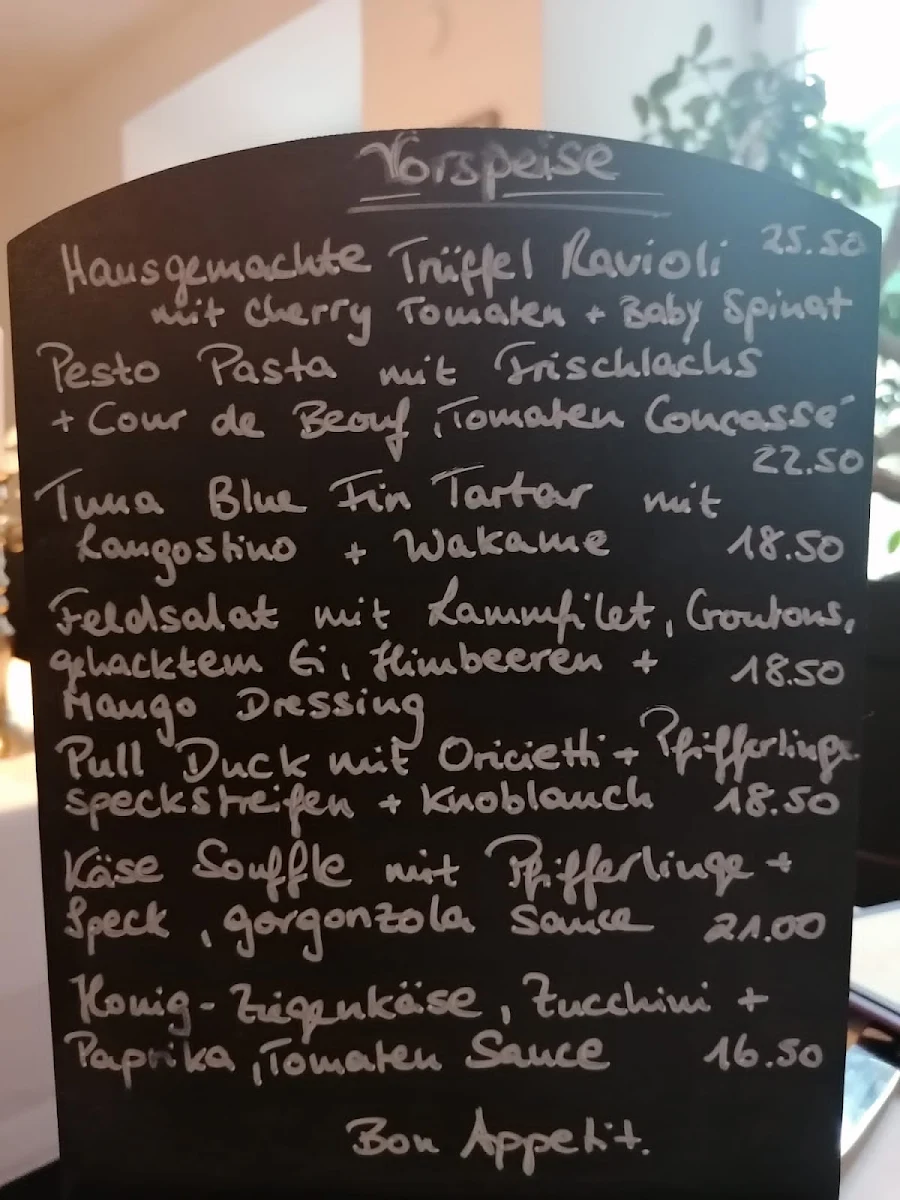 Vorspeise
Hausgemachte Trüffel Ravioli 25.50
mit Cherry Tomaten + Baby Spinat
Pesto Pasta mit Frischlachs
+ Cour de Beouf, Tomaten Concassé
22.50
Tuna Blue Fin Tartar mit
Langostino + Wakame 18.50
Feldsalat mit Lammfilet, Croutons,
gehacktem Ei, Himbeeren + 18.50
Mango Dressing
Pull Duck mit Oricietti + Pfifferlinge
speckstreifen + Knoblauch 18.50
Käse Souffle mit Pfifferlinge +
Speck, gorgonzola Sauce 21.00
Honig-Ziegenkäse, Zucchini +
Paprika, Tomaten Sauce 16.50
Bon Appetit.